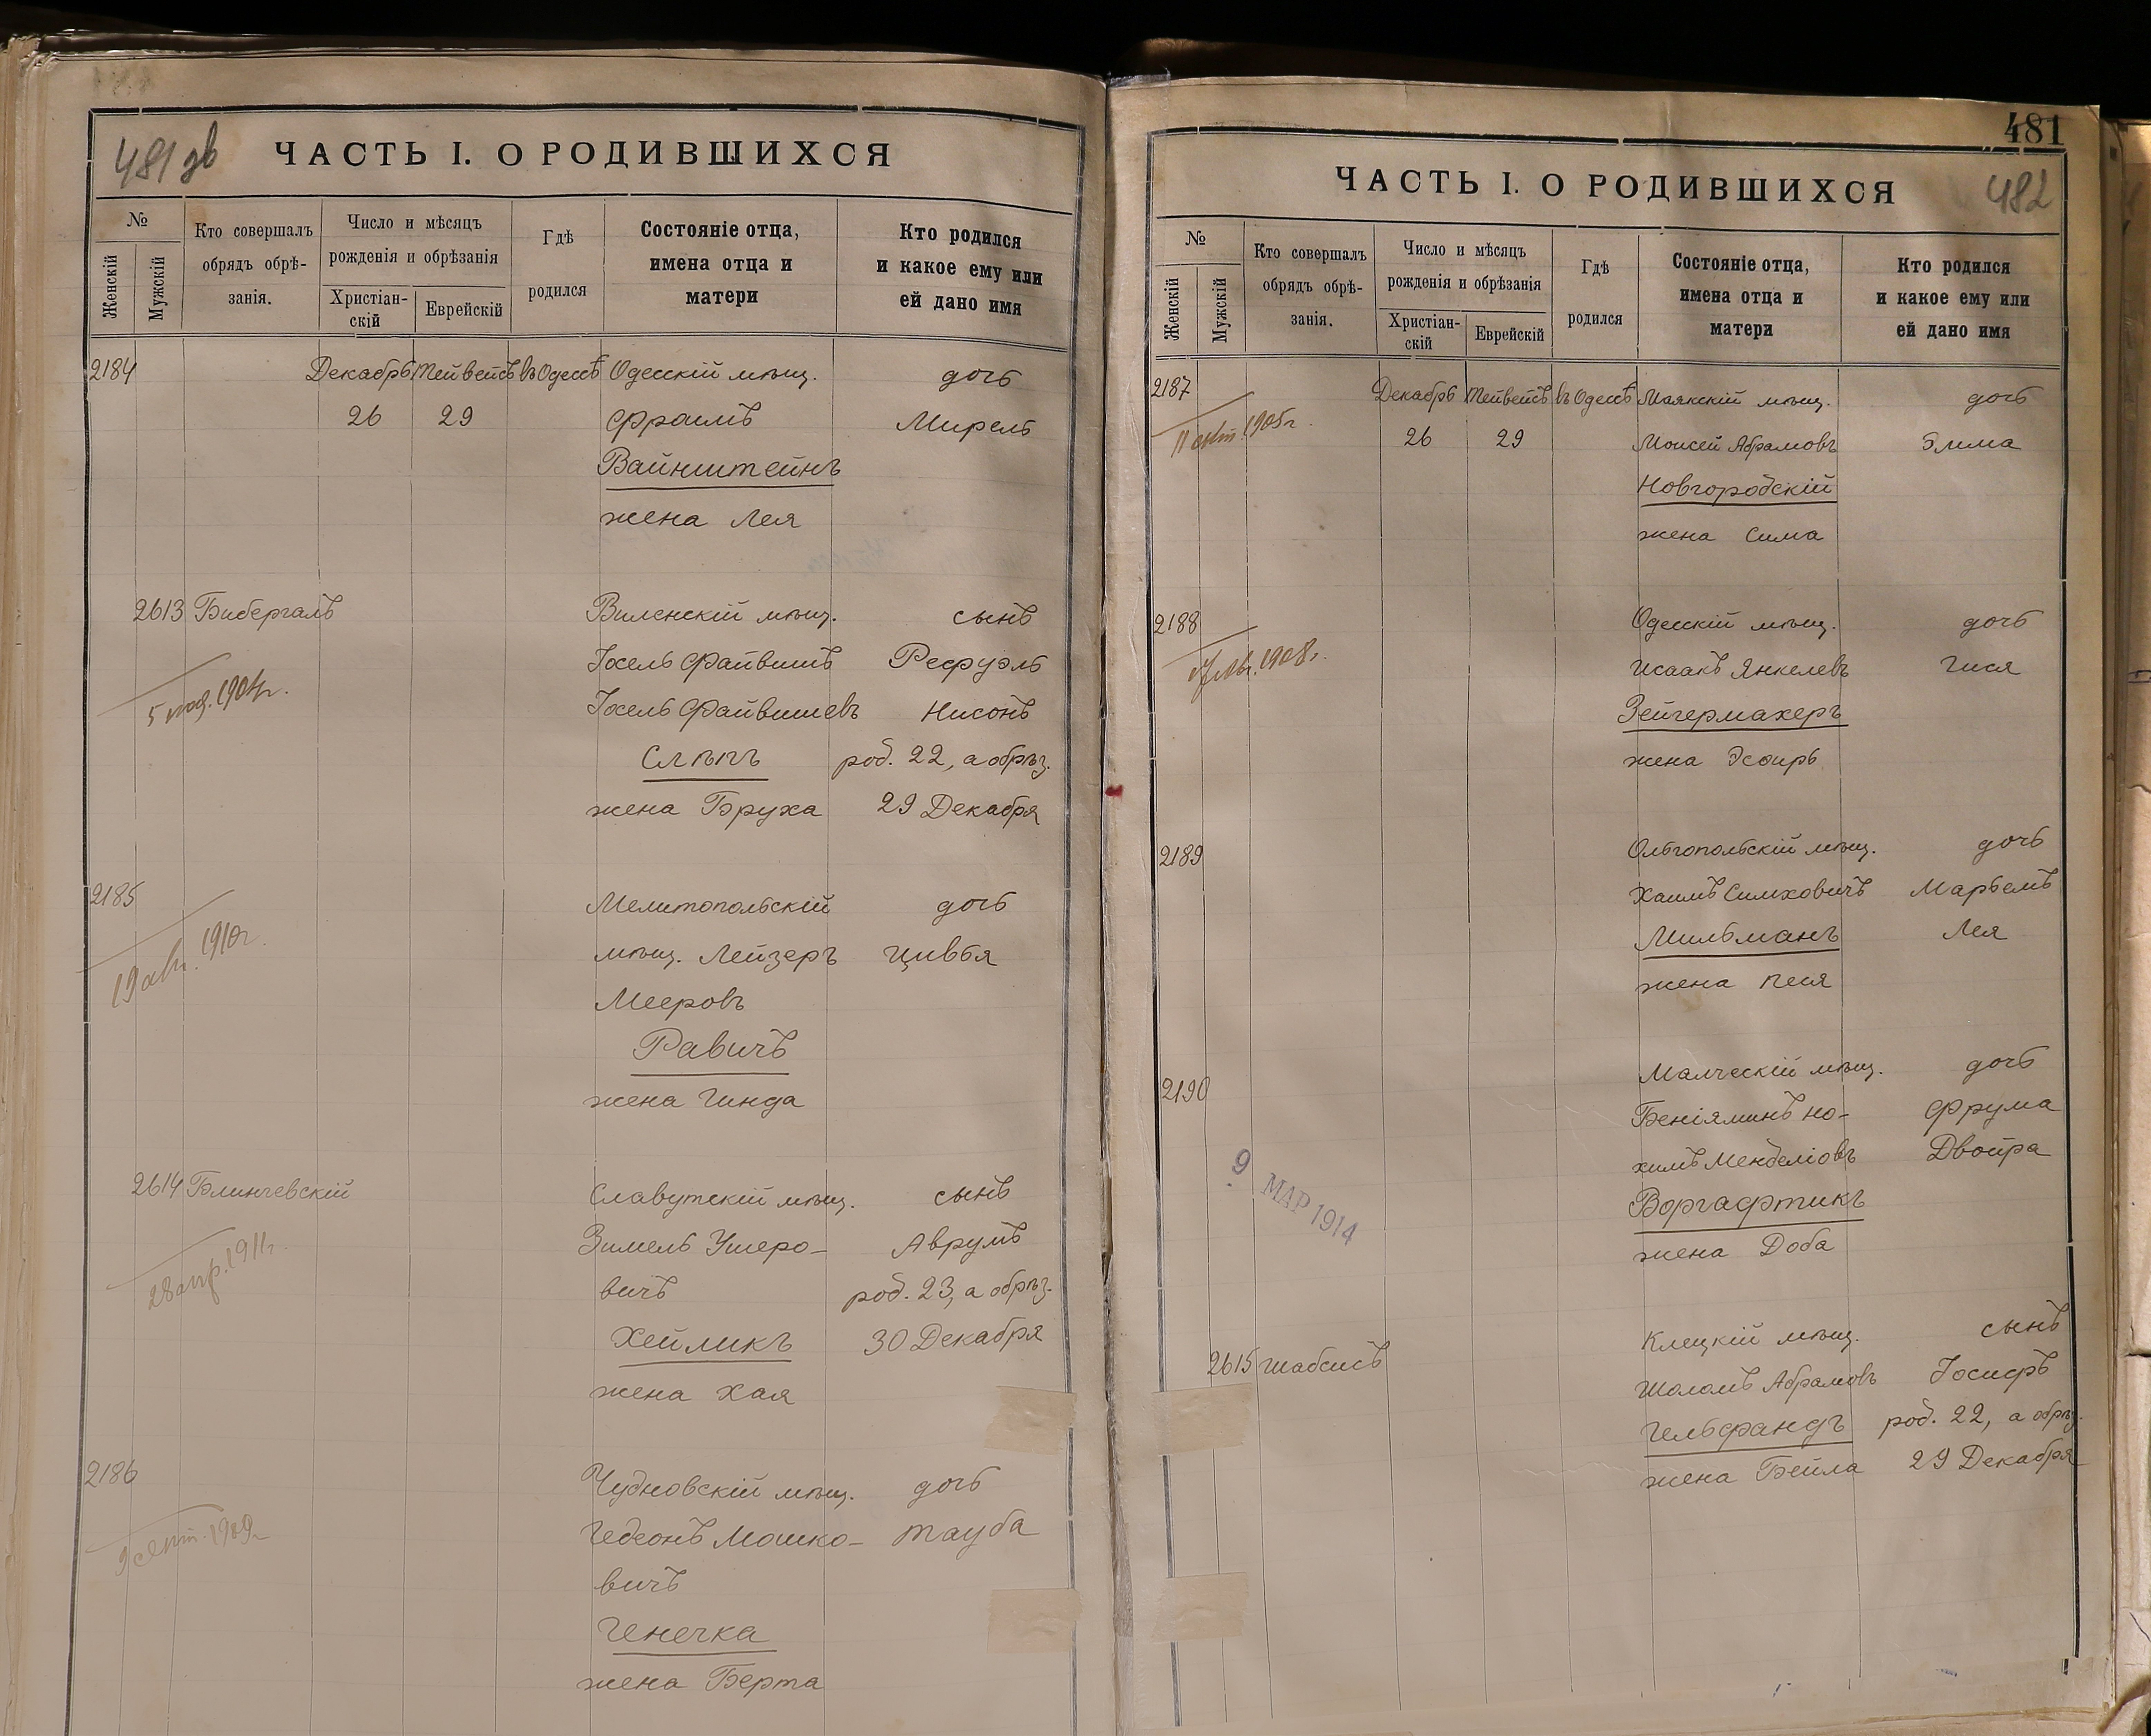 481 дв
ЧАСТЬ I. О РОДИВШИХСЯ
№
Женскій
Мужскій
Кто совершалъ
обрядъ обрѣ-
занія.
Число и мѣсяцъ
рожденія и обрѣзанія
Христіан-
скій
Еврейскій
Гдѣ
родился
Состояніе отца,
имена отца и
матери
Кто родился
и какое ему или
ей дано имя
2184 Декабрь Тейвейсъ въ Одессѣ Одесскій мѣщ. дочь
26 29 Фроимъ Мирель
Вайнштейнъ
жена Лея
2613 Бибергалъ Виленскій мѣщ. сынъ
Іосель Файвишъ Рефуэль
Іосель Файвишевъ Нисонъ
Слѣпъ род. 22, а обрѣз.
жена Бруха 29 Декабря
5 1904г.
2185 Мелитопольскій дочь
мѣщ. Лейзеръ Цивья
Мееровъ
Равичъ
жена Гинда
19 авг. 1910г.
2614 Блинчевскій Славутскій мѣщ. сынъ
Зимель Ушеро- Аврумъ
вичъ род. 23, а обрѣз.
Хейликъ 30 Декабря
жена Хая
28 апр. 1911г.
2186 Чудновскій мѣщ. дочь
Гедеонъ Мошко- Тауба
вичъ
Генечка
жена Берта
9 сент. 1909г.
481
482
ЧАСТЬ I. О РОДИВШИХСЯ
№
Женскій
Мужскій
Кто совершалъ
обрядъ обрѣ-
занія.
Число и мѣсяцъ
рожденія и обрѣзанія
Христіан-
скій
Еврейскій
Гдѣ
родился
Состояніе отца,
имена отца и
матери
Кто родился
и какое ему или
ей дано имя
2187 Декабрь Тейвейсъ въ Одессѣ Маякскій мѣщ. дочь
26 29 Моисей Абрамовъ Элма
Новгородскій
жена Сима
11 окт. 1905г.
2188 Одесскій мѣщ. дочь
Исаакъ Янкелевъ Гися
Зейгермахеръ
жена Эсфирь
1908г.
2189 Ольгопольскій мѣщ. дочь
Хаимъ Симховичъ Марьемъ
Мильманъ Лея
жена Песя
2190 Малческій мѣщ. дочь
Беніяминъ Но- Фрума
химъ Менделіовъ Двойра
Воргафтикъ
жена Доба
9 МАР 1914
2615 Шабсисъ Клецкій мѣщ. сынъ
Шоломъ Абрамовъ Іосифъ
Гельфандъ род. 22, а обрѣз.
жена Бейла 29 Декабря